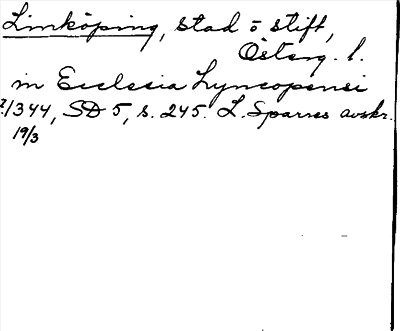 Linköping, stad o stift,
Österg. l.
in Ecclesia Lyncopensi
1344, SD 5, s. 245. L. Sparres avskr.
19/3